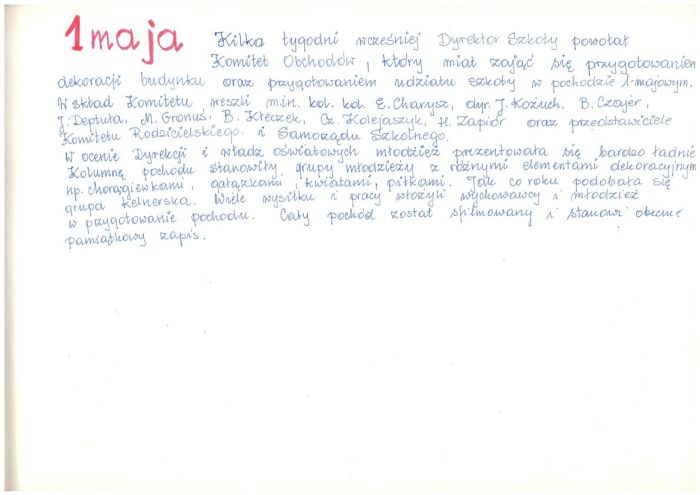 1 maja Kilka tygodni wcześniej Dyrektor Szkoły powołał
Komitet Obchodów, który miał zająć się przygotowaniem
dekoracji budynku oraz przygotowaniem udziału szkoły w pochodzie 1-majowym.
W skład Komitetu weszli m.in. kol. kol. E. Charysz, dyr. J. Kożuch, B. Czajer,
J. Deptuła, M. Gronuś, B. Kłeczek, Cz. Kolejaszyk, H. Zapiór oraz przedstawiciele
Komitetu Rodzicielskiego i Samorządu Szkolnego.
W ocenie Dyrekcji i władz oświatowych młodzież prezentowała się bardzo ładnie
Kolumnę pochodu stanowiły grupy młodzieży z różnymi elementami dekoracyjnym
np. chorągiewkami, gałązkami, kwiatami, piłkami. Jak co roku podobała się
grupa Kelnerska. Wiele wysiłku i pracy włożyli wychowawcy i młodzież
w przygotowanie pochodu. Cały pochód został sfilmowany i stanowi obecnie
pamiątkowy zapis.